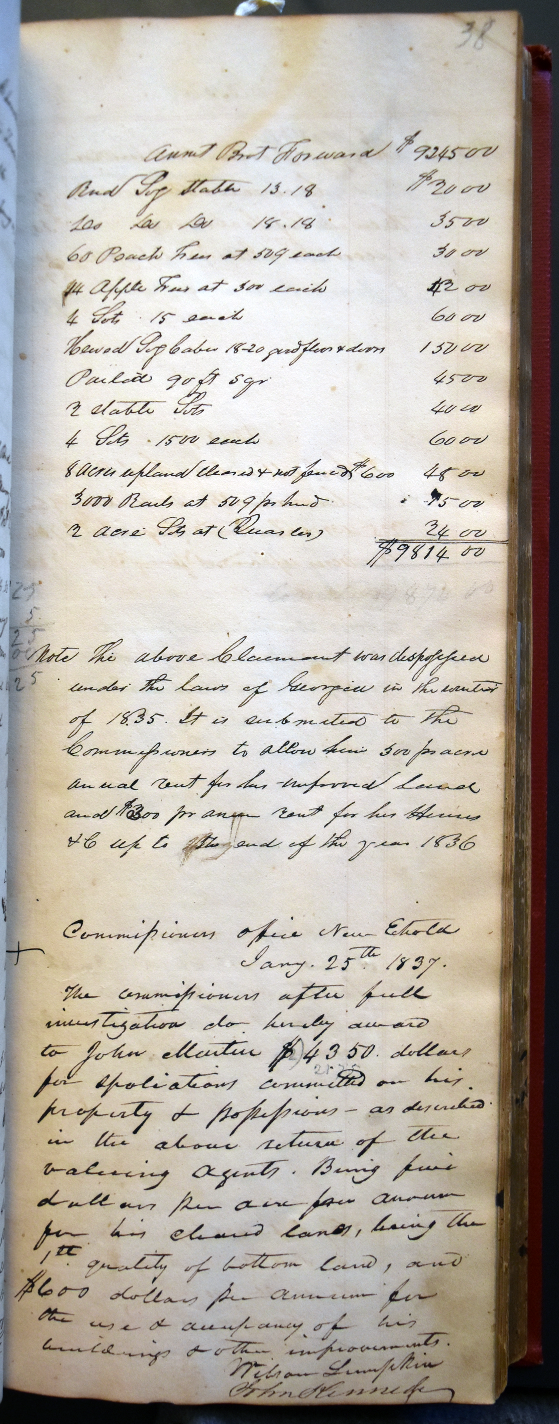 38
Aunt Brot Forward $ 9245 00
Rnd Log Stable 13.18 $ 20 00
Do Do Do 18.18 35 00
60 Peach Trees at 50¢ each 30 00
14 Apple Trees at 300 each 42 00
4 Lots 15 each 60 00
Hewed Log Cabin 18-20 good floor & doors 150 00
Pailed 90 ft sqr 45 00
2 stable Lots 40 00
4 Lots 1500 each 60 00
8 acres upland cleared & not fenced $600 48 00
3000 Rails at 50¢ pr hund 15 00
2 acre Lots at (Quarles) 24 00
$9814 00
Note The above Claimant was dispossessed
under the laws of Georgia in the winter
of 1835. It is submitted to the
Commissioners to allow him 500 pr acre
annual rent for his improved land
and $300 pr anum rent for his Houses
&C up to the end of the year 1836
Commissioners office New Echota
Jany. 25th 1837.
The commissioners after full
investigation do hereby award
to John Martin $4350. dollars
for spoliations committed on his
property & possessions - as described
in the above return of the
valuing agents. Being five
dollars per acre per annum
for his cleared land, being the
1th quality of bottom land, and
$600 dollars per annum for
the use & occupancy of his
buildings & other improvements.
Wilson Lumpkin
John Kennedy